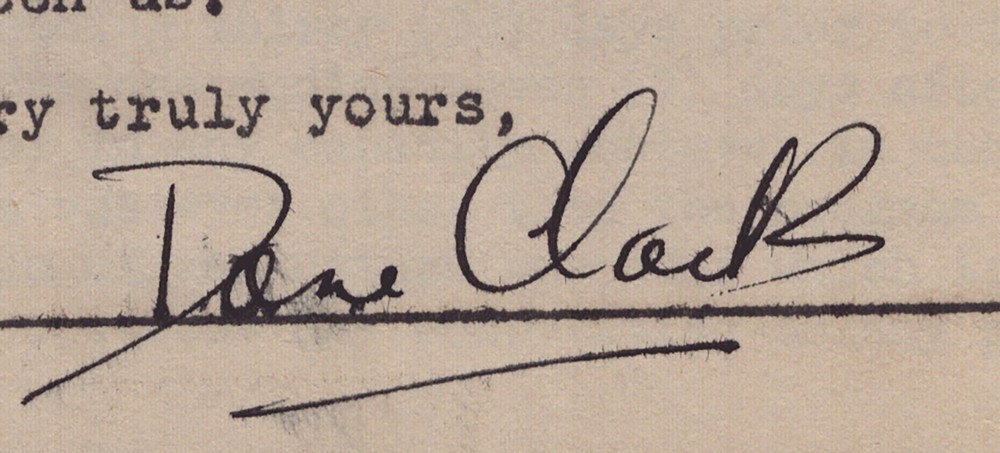 ry truly yours,
Dane Clark